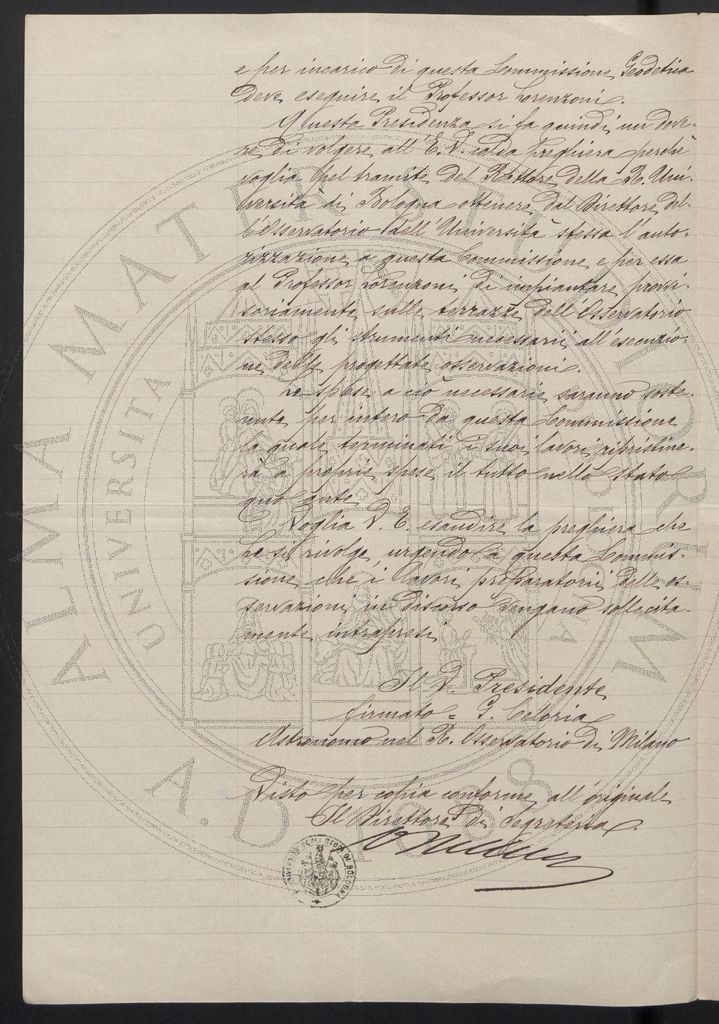 e per incarico di questa Commissione Geodetica
deve eseguire il Professor Lorenzoni.
Questa Presidenza si fa quindi un dove-
re di volgere all'E. V. calda preghiera perchè
voglia pel tramite del Rettore della R. Uni-
versità di Bologna ottenere dal Direttore del-
l'Osservatorio dell'Università stessa l'auto-
rizzazione a questa Commissione e per essa
al Professor Lorenzoni di impiantare provvi
soriamente sulle terrazze dell'Osservatorio
stesso gli strumenti necessarii all'esecuzio-
ne delle progettate osservazioni.
Le spese a ciò necessarie saranno soste-
nute per intero da questa Commissione
la quale terminati i suoi lavori ripristine-
rà a proprie spese il tutto nello stato
quo ante.
Voglia V. E. esaudire la preghiera che
le si rivolge urgendo a questa Commis-
sione che i lavori preparatorii delle os-
servazioni in discorso vengano sollecita-
mente intrapresi.
Il V. Presidente
firmato = G. Celoria
Astronomo nel R. Osservatorio di Milano
Visto per copia conforme all'originale
Il Direttore di Segreteria
ALMA MATER STUDIORUM
UNIVERSITA DI BOLOGNA
A.D. 1088
UNIVERSITÀ DEGLI STUDI DI BOLOGNA